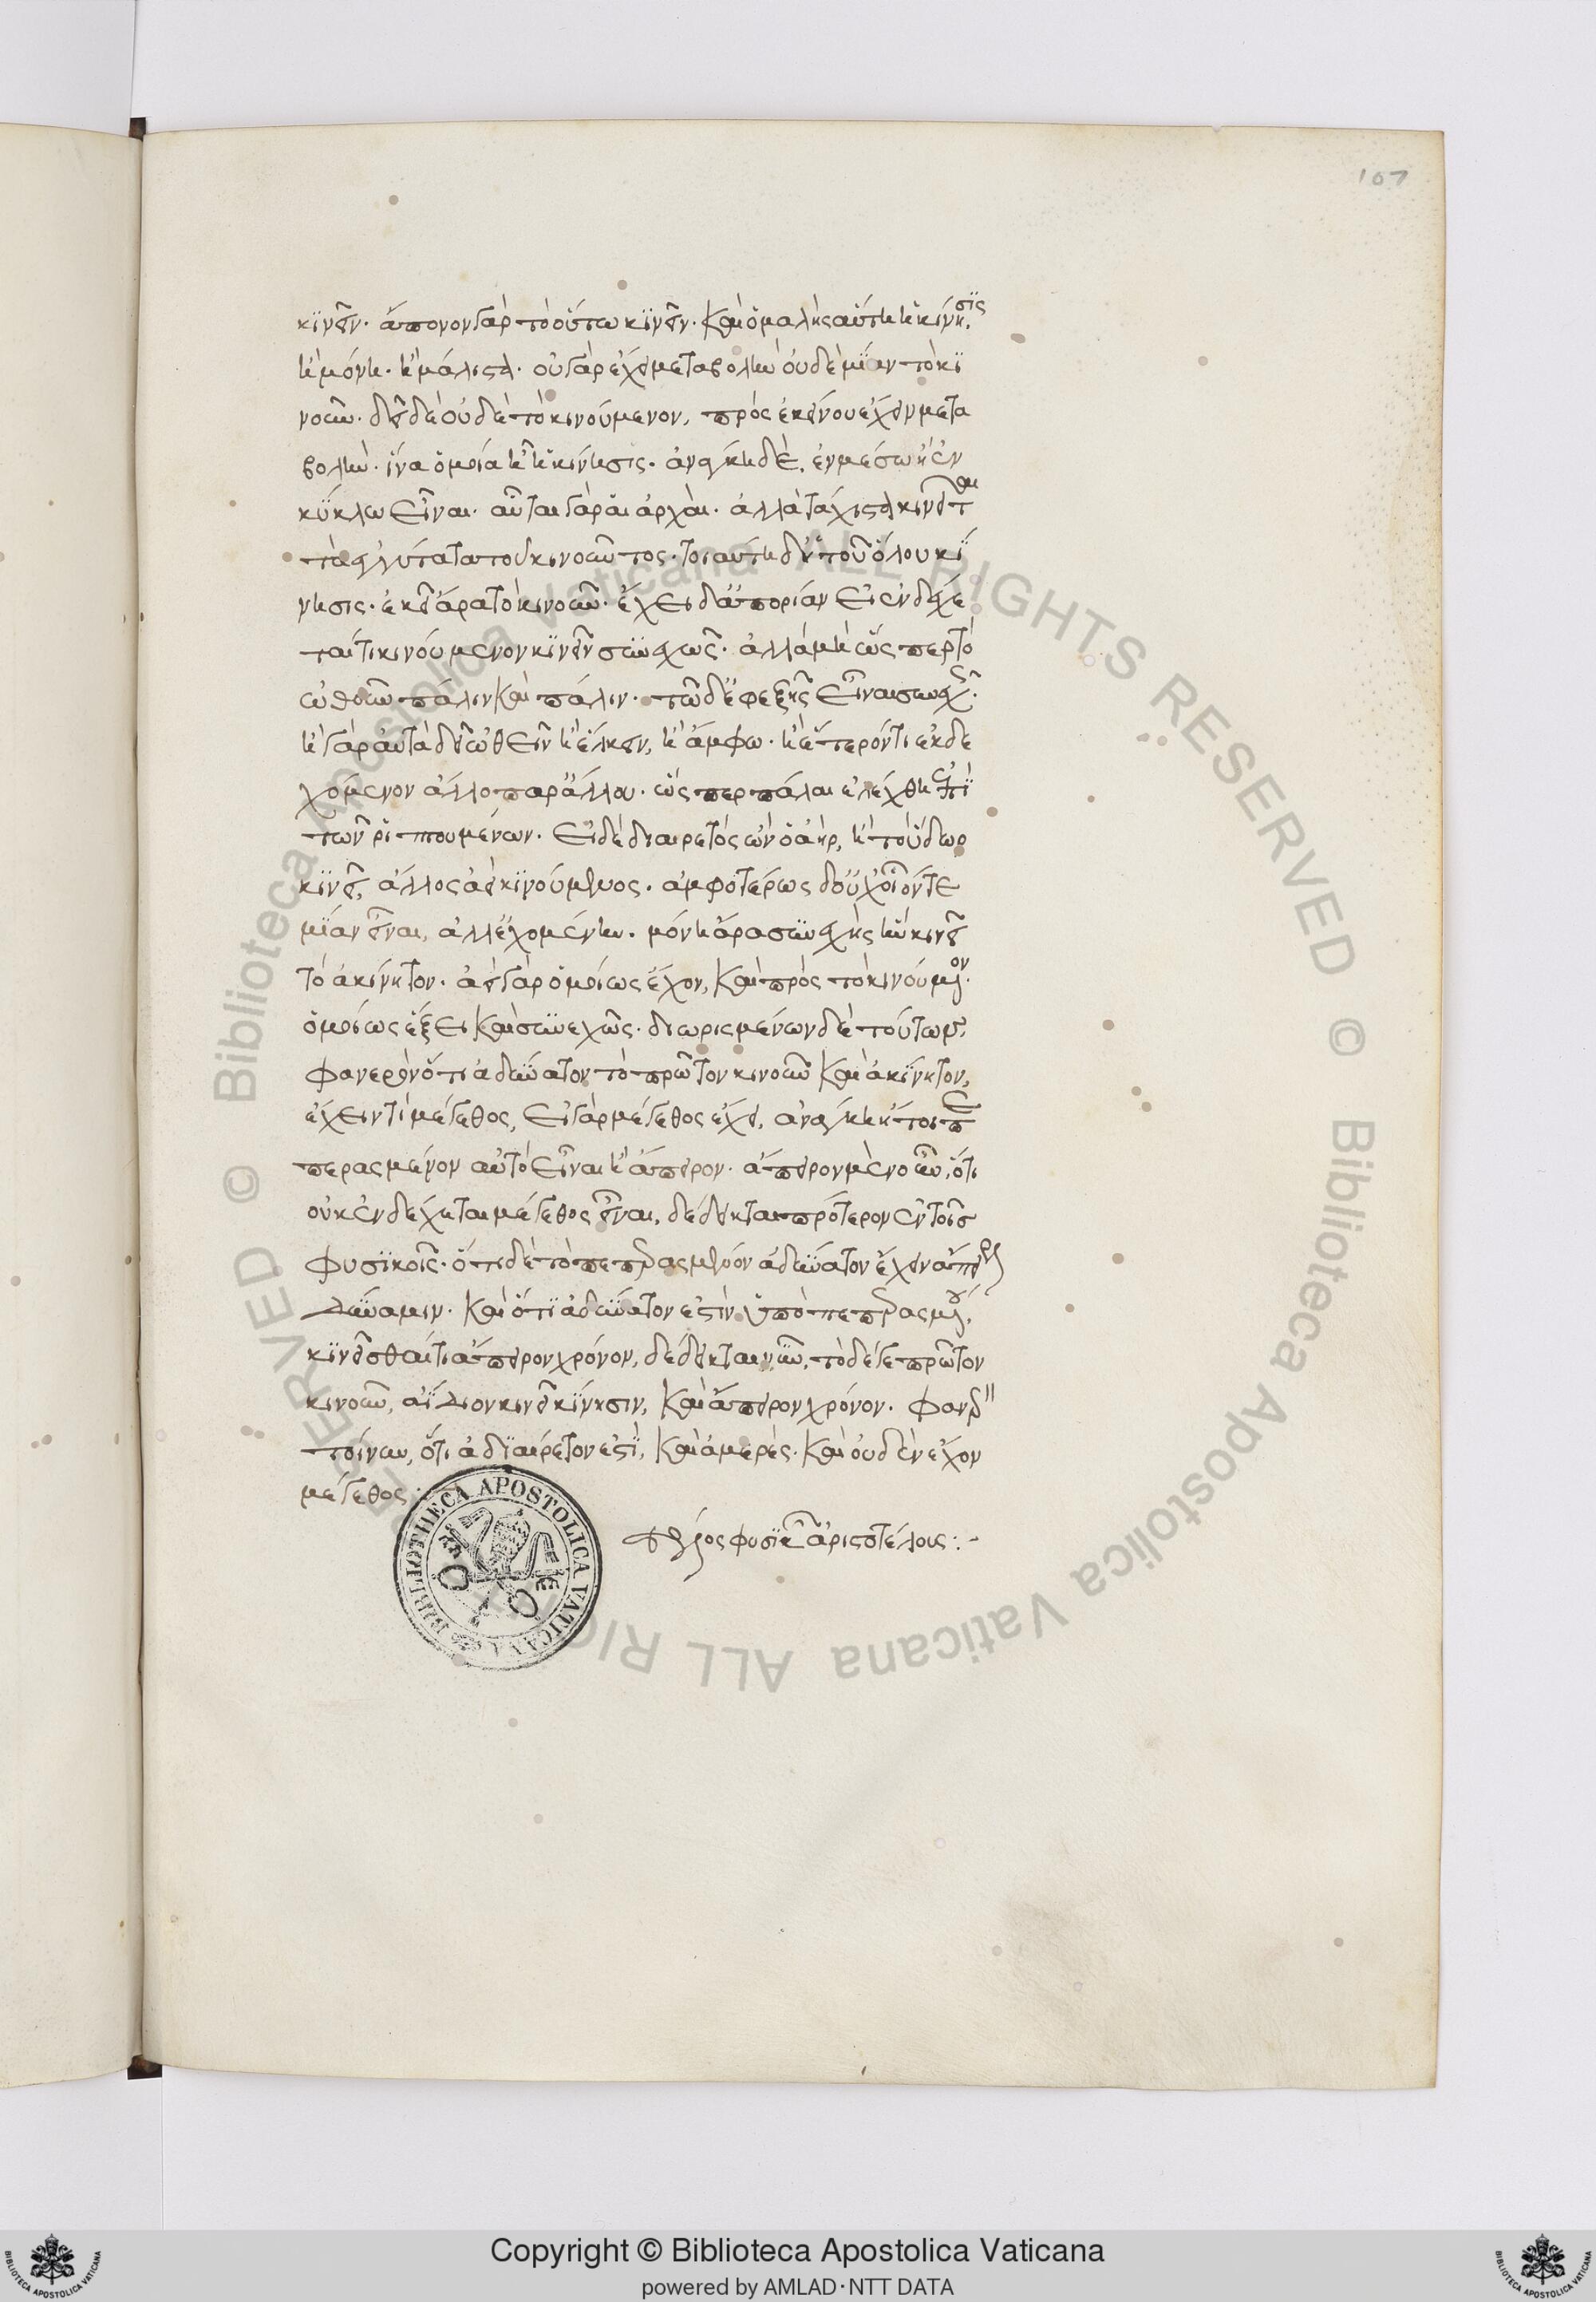 107
κϊνεῖν· ἄπονον γὰρ τὸ οὕτω κϊνεῖν· καὶ ὁμαλὴς αὕτη ἡ κίνησϊς
ἢ μόνη· ἢ μάλιστα· οὐ γὰρ ἔχει μεταβολὴν οὐδεμίαν τὸ κϊ
νοῦν· δεῖ δὲ οὐδὲ τὸ κινούμενον, πρὸς ἐκείνου ἔχειν μετα
βολὴν· ἵνα ὁμοία ᾖ ἡ κίνησις· ἀνάγκη δὲ, ἐν μέσω ἢ ἐν
κύκλω εἶναι· αὗται γὰρ αἱ ἀρχαι· ἀλλὰ τάχιστα κινεῖται
τὰ ἐγγύτατα τοῦ κινοῦντος· τοιαύτη δ' ἡ τοῦ ὅλου κί
νησις· ἐκεῖ ἄρα τὸ κινοῦν· ἔχει δ' ἀπορίαν εἰ ἐνδέχε
ται τι κινούμενον κϊνεῖν συνεχῶς· ἀλλὰ μὴ ὥσπερ τὸ
ὠθοῦν πάλιν καὶ πάλιν· τῶ δ' ἐφεξῆς εἶναι συνεχῶς·
ἢ γὰρ αὐτὰ δεῖ ὠθεῖν ἢ ἕλκειν, ἢ ἄμφω· ἢ ἕτερόν τι ἐκδε
χόμενον ἄλλο παρ' ἄλλου· ὥσπερ πάλαι ἐλέχθη ἐπὶ
τῶν ῥιπτουμένων· εἰ δὲ διαιρετὸς ὢν ὁ ἀὴρ, ἢ τὸ ὕδωρ
κϊνεῖ, ἄλλος ἀεὶ κϊνούμενος· ἀμφοτέρως δ' οὐχ οἷόν τε
μίαν εἶναι, ἀλλ' ἐχομένην· μόνη ἄρα συνεχὴς ἣν κινεῖ
τὸ ἀκίνητον· ἀεὶ γὰρ ὁμοίως ἔχον, καὶ πρὸς τὸ κινούμενον·
ὁμοίως ἕξει καὶ συνεχῶς· διωρισμένων δὲ τούτων,
φανερὸν ὅτι ἀδύνατον τὸ πρῶτον κινοῦν καὶ ἀκίνητον,
ἔχειν τὶ μέγεθος, εἰ γὰρ μέγεθος ἔχει, ἀνάγκη ἤτοι πε
περασμένον αὐτὸ εἶναι ἢ ἄπειρον· ἄπειρον μὲν οὖν, ὅτι
οὐκ ἐνδέχεται μέγεθος εἶναι, δέδεικται πρότερον ἐν τοῖς
φυσϊκοῖς· ὅτι δὲ τὸ πεπερασμένον ἀδύνατον ἔχειν ἄπειρον
δύναμιν· καὶ ὅτϊ ἀδύνατον ἐστὶν ὑπὸ πεπερασμένου,
κϊνεῖσθαι τι ἄπειρον χρόνον, δέδεικται νῦν, τὸ δέ γε πρῶτον
κινοῦν, ἀΐδιον κινεῖ κίνησιν, καὶ ἄπειρον χρόνον· φανερὸν
τοίνυν, ὅτι ἀδϊαίρετον ἐστϊ, καὶ ἀμερὲς· καὶ οὐδὲν ἔχον
μέγεθος
τέλος φυσϊκῆς ἀριστοτέλους :·-
BIBLIOTHECA APOSTOLICA VATICANA
© Biblioteca Apostolica Vaticana ALL RIGHTS RESERVED © Biblioteca Apostolica Vaticana ALL RIGHTS RESERVED
Copyright © Biblioteca Apostolica Vaticana
powered by AMLAD·NTT DATA
BIBLIOTECA APOSTOLICA VATICANA
BIBLIOTECA APOSTOLICA VATICANA